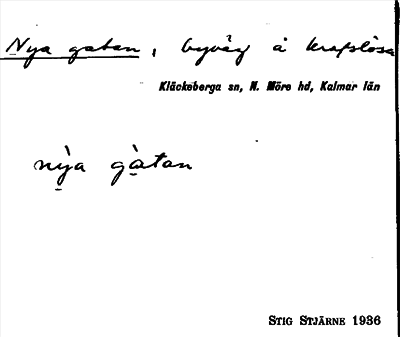 Nya gatan, byväg å Krafslösa
Kläckeberga sn, N. Möre hd, Kalmar län
nỳa gàtan
STIG STJÄRNE 1936